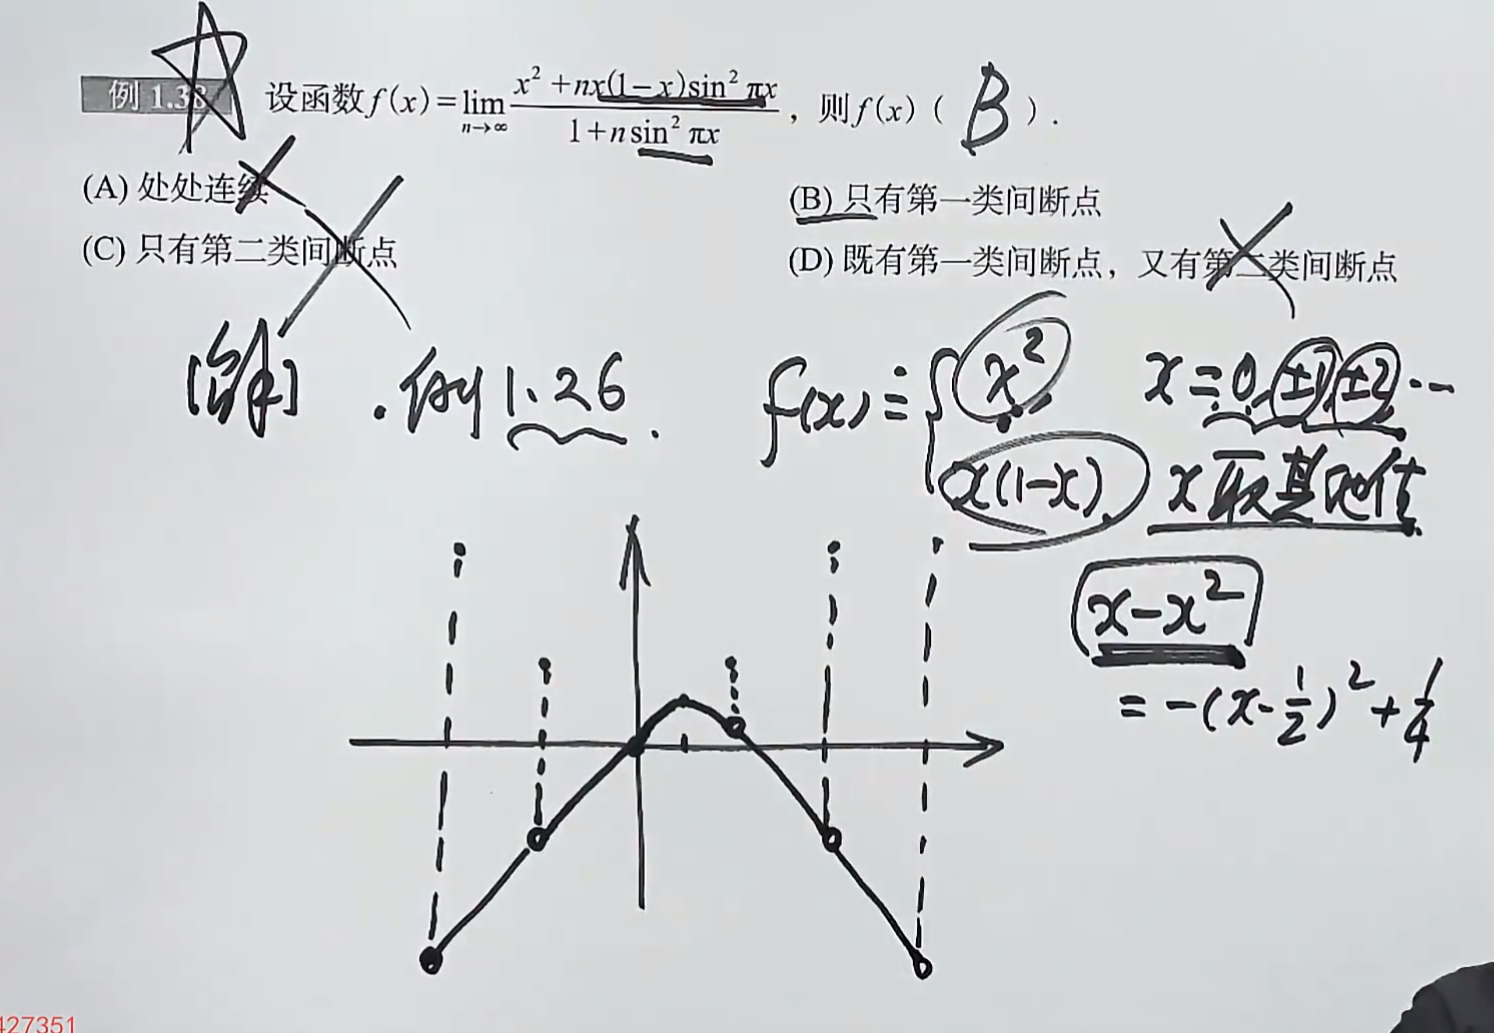 例 1.38 设函数 f(x)=lim n→∞ (x²+nx(1−x)sin²πx)/(1+n sin²πx)，则 f(x)（ B ）.
(A) 处处连续 (B) 只有第一类间断点
(C) 只有第二类间断点 (D) 既有第一类间断点，又有第二类间断点
[解] . 例 1.26 . f(x)={ x² x=0,±1,±2…
x(1-x), x取其他值
x-x²
=-(x-1/2)²+1/4
427351